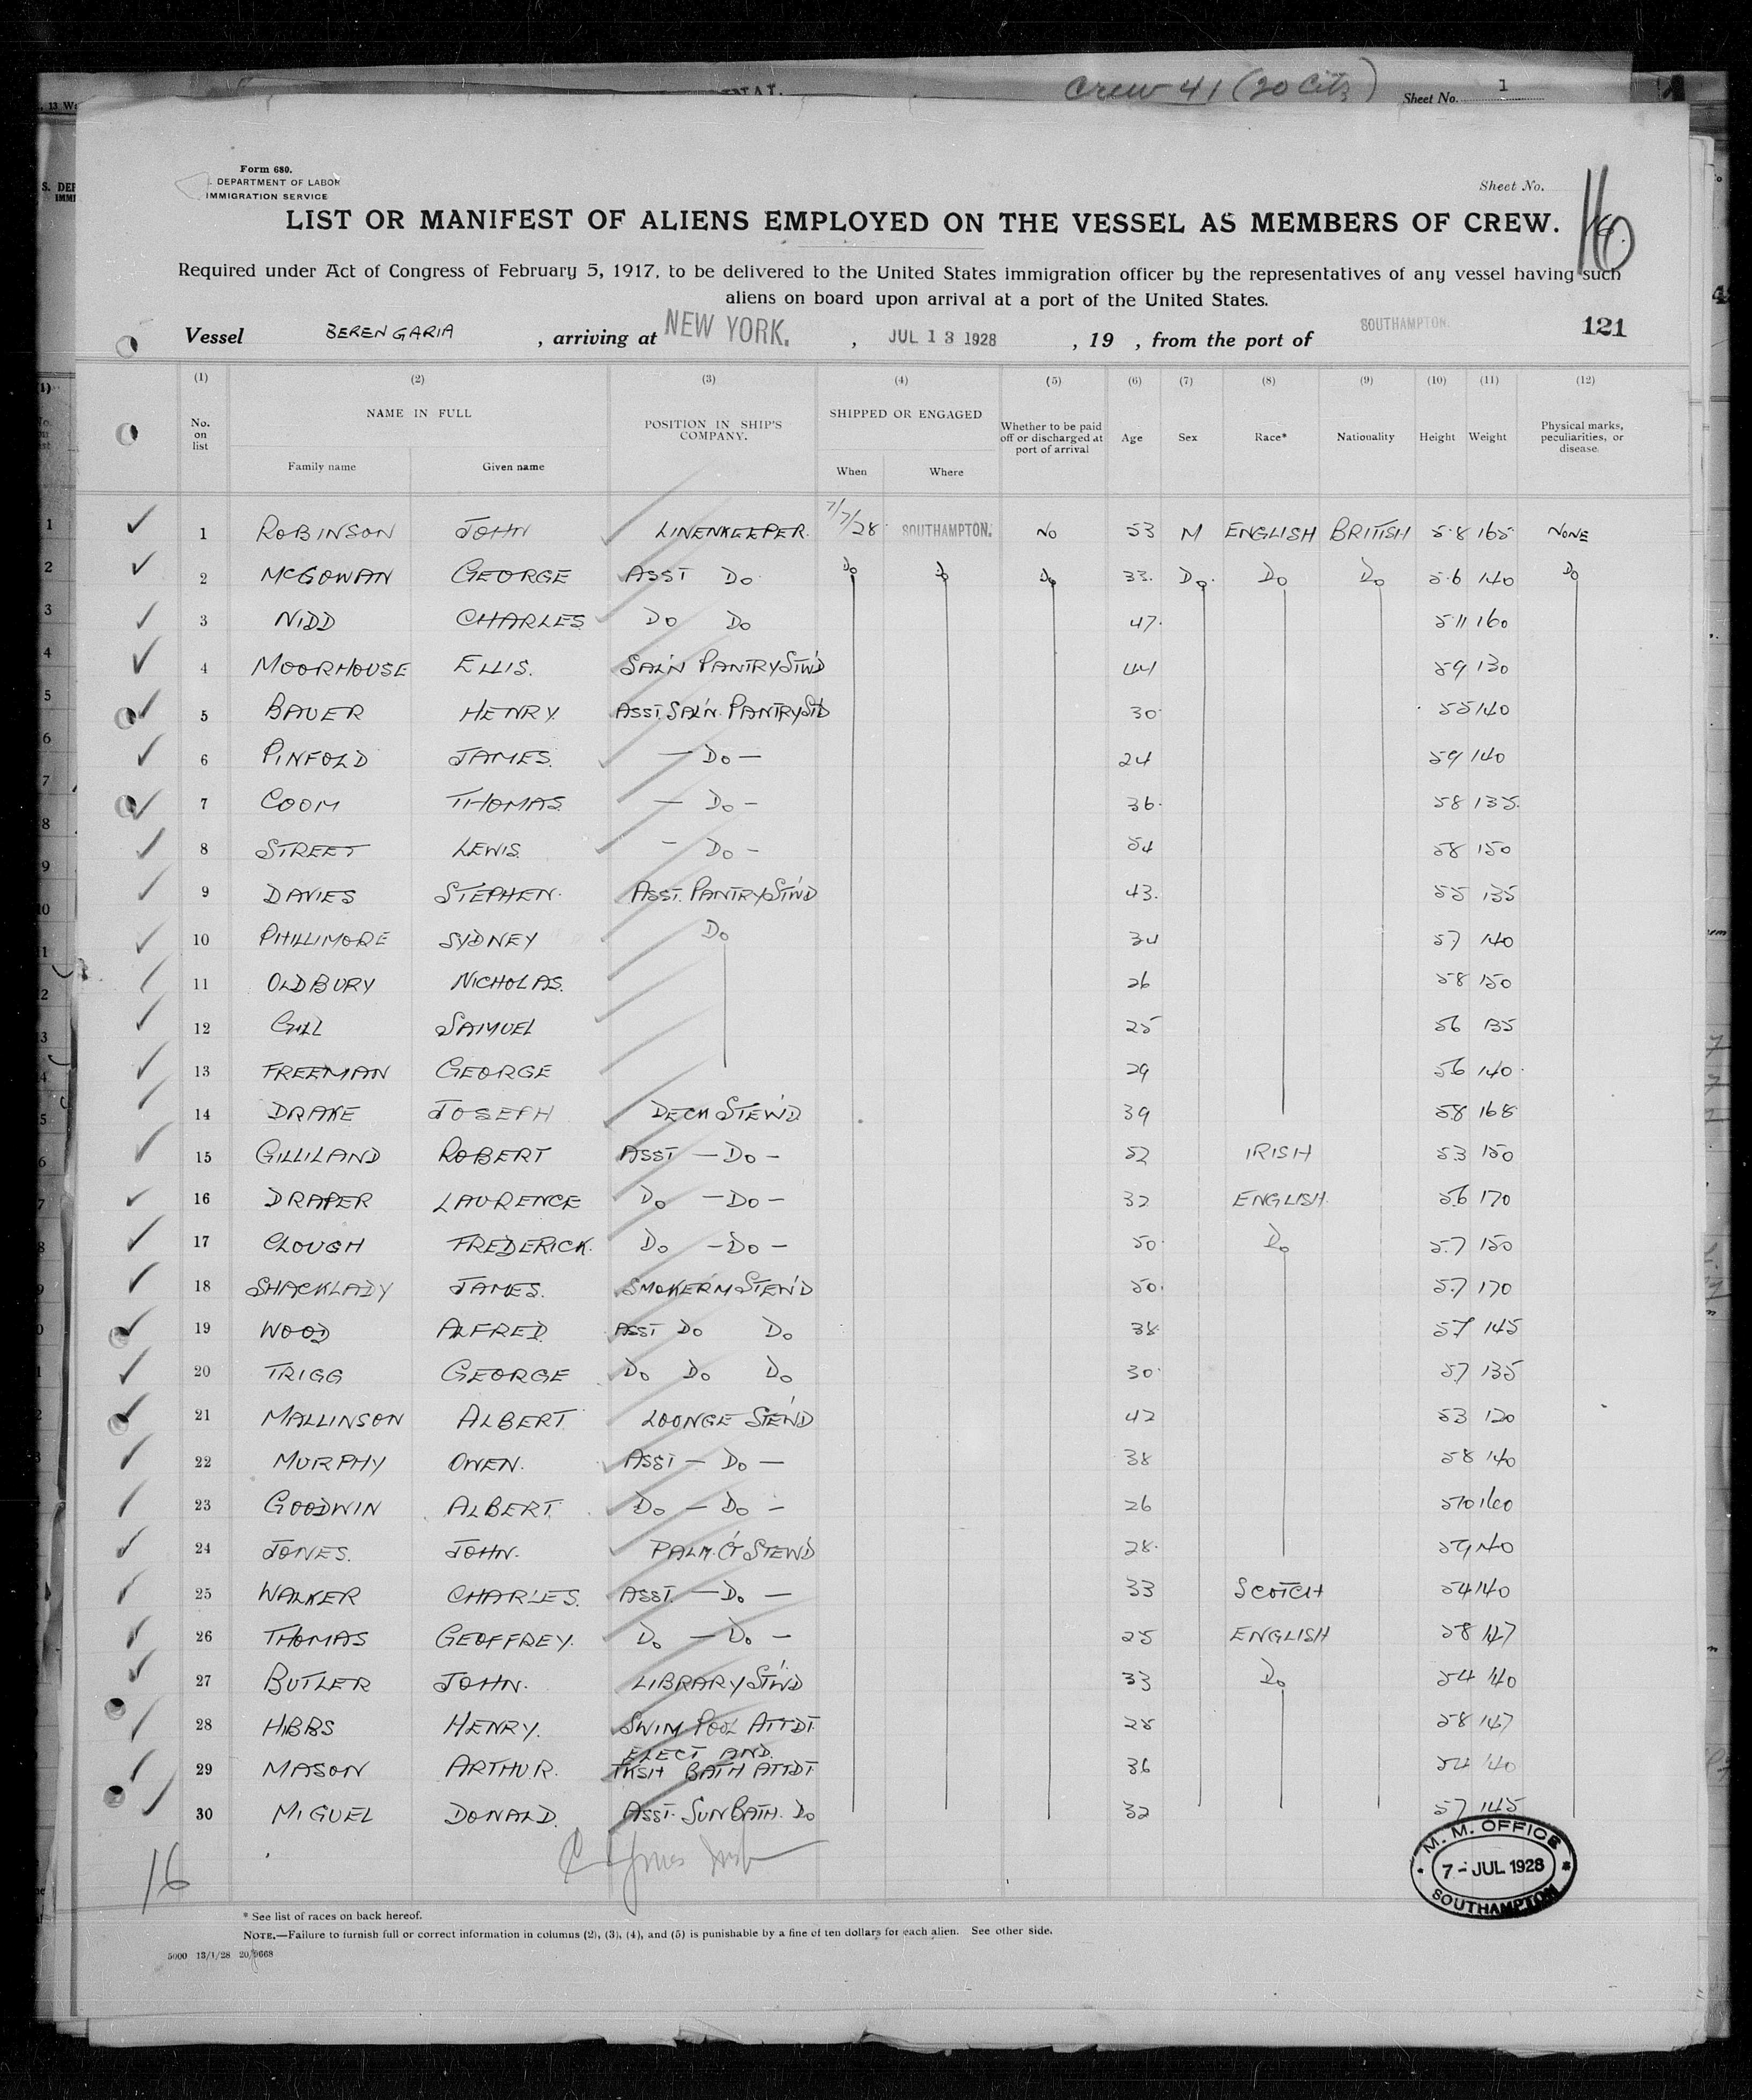 Crew 41 (20 Citz) Sheet No. 1
Form 680.
DEPARTMENT OF LABOR
IMMIGRATION SERVICE
Sheet No. 16
LIST OR MANIFEST OF ALIENS EMPLOYED ON THE VESSEL AS MEMBERS OF CREW.
Required under Act of Congress of February 5, 1917, to be delivered to the United States immigration officer by the representatives of any vessel having such
aliens on board upon arrival at a port of the United States.
Vessel BERENGARIA, arriving at NEW YORK. , JUL 13 1928 , 19 , from the port of SOUTHAMPTON. 121
(1) (2) (3) (4) (5) (6) (7) (8) (9) (10) (11) (12)
No. on list NAME IN FULL POSITION IN SHIP'S COMPANY. SHIPPED OR ENGAGED Whether to be paid off or discharged at port of arrival Age Sex Race* Nationality Height Weight Physical marks, peculiarities, or disease
Family name Given name When Where
1 ROBINSON JOHN LINENKEEPER. 7/7/28 SOUTHAMPTON. NO 53 M ENGLISH BRITISH 5·8 165 NONE
2 McGOWAN GEORGE ASST DO Do Do Do 33. Do. Do Do 5·6 140 Do
3 NIDD CHARLES DO DO 47. 5·11 160
4 MOORHOUSE ELLIS. SAL'N PANTRY STW'D 44 59 130
5 BAUER HENRY ASST. SAL'N. PANTRY ST'D 30 55 140
6 PINFOLD JAMES. — DO — 24 59 140
7 COOM THOMAS. — DO — 36. 58 135.
8 STREET LEWIS. — DO — 54 58 150
9 DAVIES STEPHEN. ASST. PANTRY STW'D 43. 55 135
10 PHILLIMORE SYDNEY Do 34 57 140
11 OLDBURY NICHOLAS. 26 58 150
12 GILL SAMUEL 25 56 135
13 FREEMAN GEORGE 29 56 140
14 DRAKE JOSEPH DECK STEW'D 39 58 168
15 GILLILAND ROBERT ASST — DO — 52 IRISH 53 150
16 DRAPER LAURENCE DO — DO — 32 ENGLISH. 56 170
17 CLOUGH FREDERICK. DO — DO — 50 Do 5.7 150
18 SHACKLADY JAMES. SMOKE R'M STEW'D 50. 5.7 170
19 WOOD ALFRED. ASST DO DO 38 57 145
20 TRIGG GEORGE DO DO DO 30 57 135
21 MALLINSON ALBERT. LOUNGE STEW'D 42 53 120
22 MURPHY OWEN. ASST — DO — 38 58 140
23 GOODWIN ALBERT. DO — DO — 26 510 160
24 JONES. JOHN. PALM. C'T STEW'D 28. 59 140
25 WALKER CHARLES. ASST. — DO — 33 SCOTCH 54 140
26 THOMAS GEOFFREY. DO — DO — 25 ENGLISH 58 147
27 BUTLER JOHN. LIBRARY STW'D 33 Do 54 140
28 HIBBS HENRY. SWIM POOL ATTDT. 28 58 147
29 MASON ARTHUR. ELECT AND. TKSH BATH ATTDT 36 54 140
30 MIGUEL DONALD. ASST. SUN BATH. DO 32 57 145
16
M. M. OFFICE
7 - JUL 1928
SOUTHAMPTON
* See list of races on back hereof.
NOTE.—Failure to furnish full or correct information in columns (2), (3), (4), and (5) is punishable by a fine of ten dollars for each alien. See other side.
5000 13/1/28 20/9668